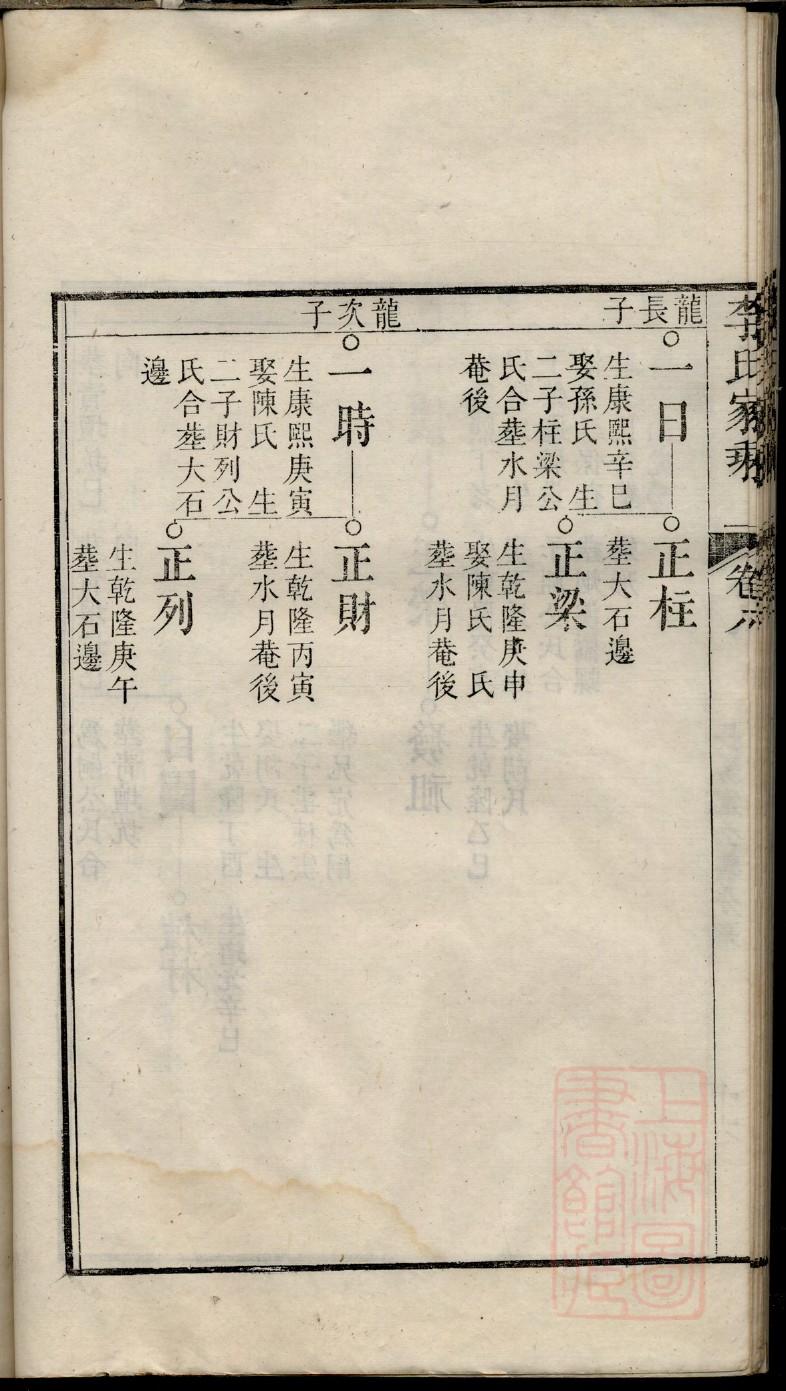 李氏家乘
卷六
龍長子
一日
生康熙辛巳
娶孫氏 生
二子柱梁公
氏合塟水月
菴後
正柱
塟大石邊
正梁
生乾隆庚申
娶陳氏 氏
塟水月菴後
龍次子
一時
生康熙庚寅
娶陳氏 生
二子財列公
氏合塟大石
邊
正財
生乾隆丙寅
塟水月菴後
正列
生乾隆庚午
塟大石邊
上海圖
書館藏